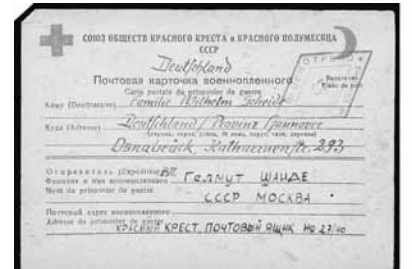 СОЮЗ ОБЩЕСТВ КРАСНОГО КРЕСТА и КРАСНОГО ПОЛУМЕСЯЦА
СССР
Deutschland
Почтовая карточка военнопленного
Carte postale du prisonnier de guerre
Кому (Destinataire) Familie Wilhelm Scheide
Куда (Adresse) Deutschland / Provinz Hannover
Osnabrück, Katharinenstr. 293
Отправитель (Expéditeur)
Фамилия и имя военнопленного Гелмут ШАИДЕ
Nom du prisonnier de guerre
СССР МОСКВА
Почтовый адрес военнопленного
Adresse du prisonnier de guerre
КРАСНЫЙ КРЕСТ, ПОЧТОВЫЙ ЯЩИК № 27/40